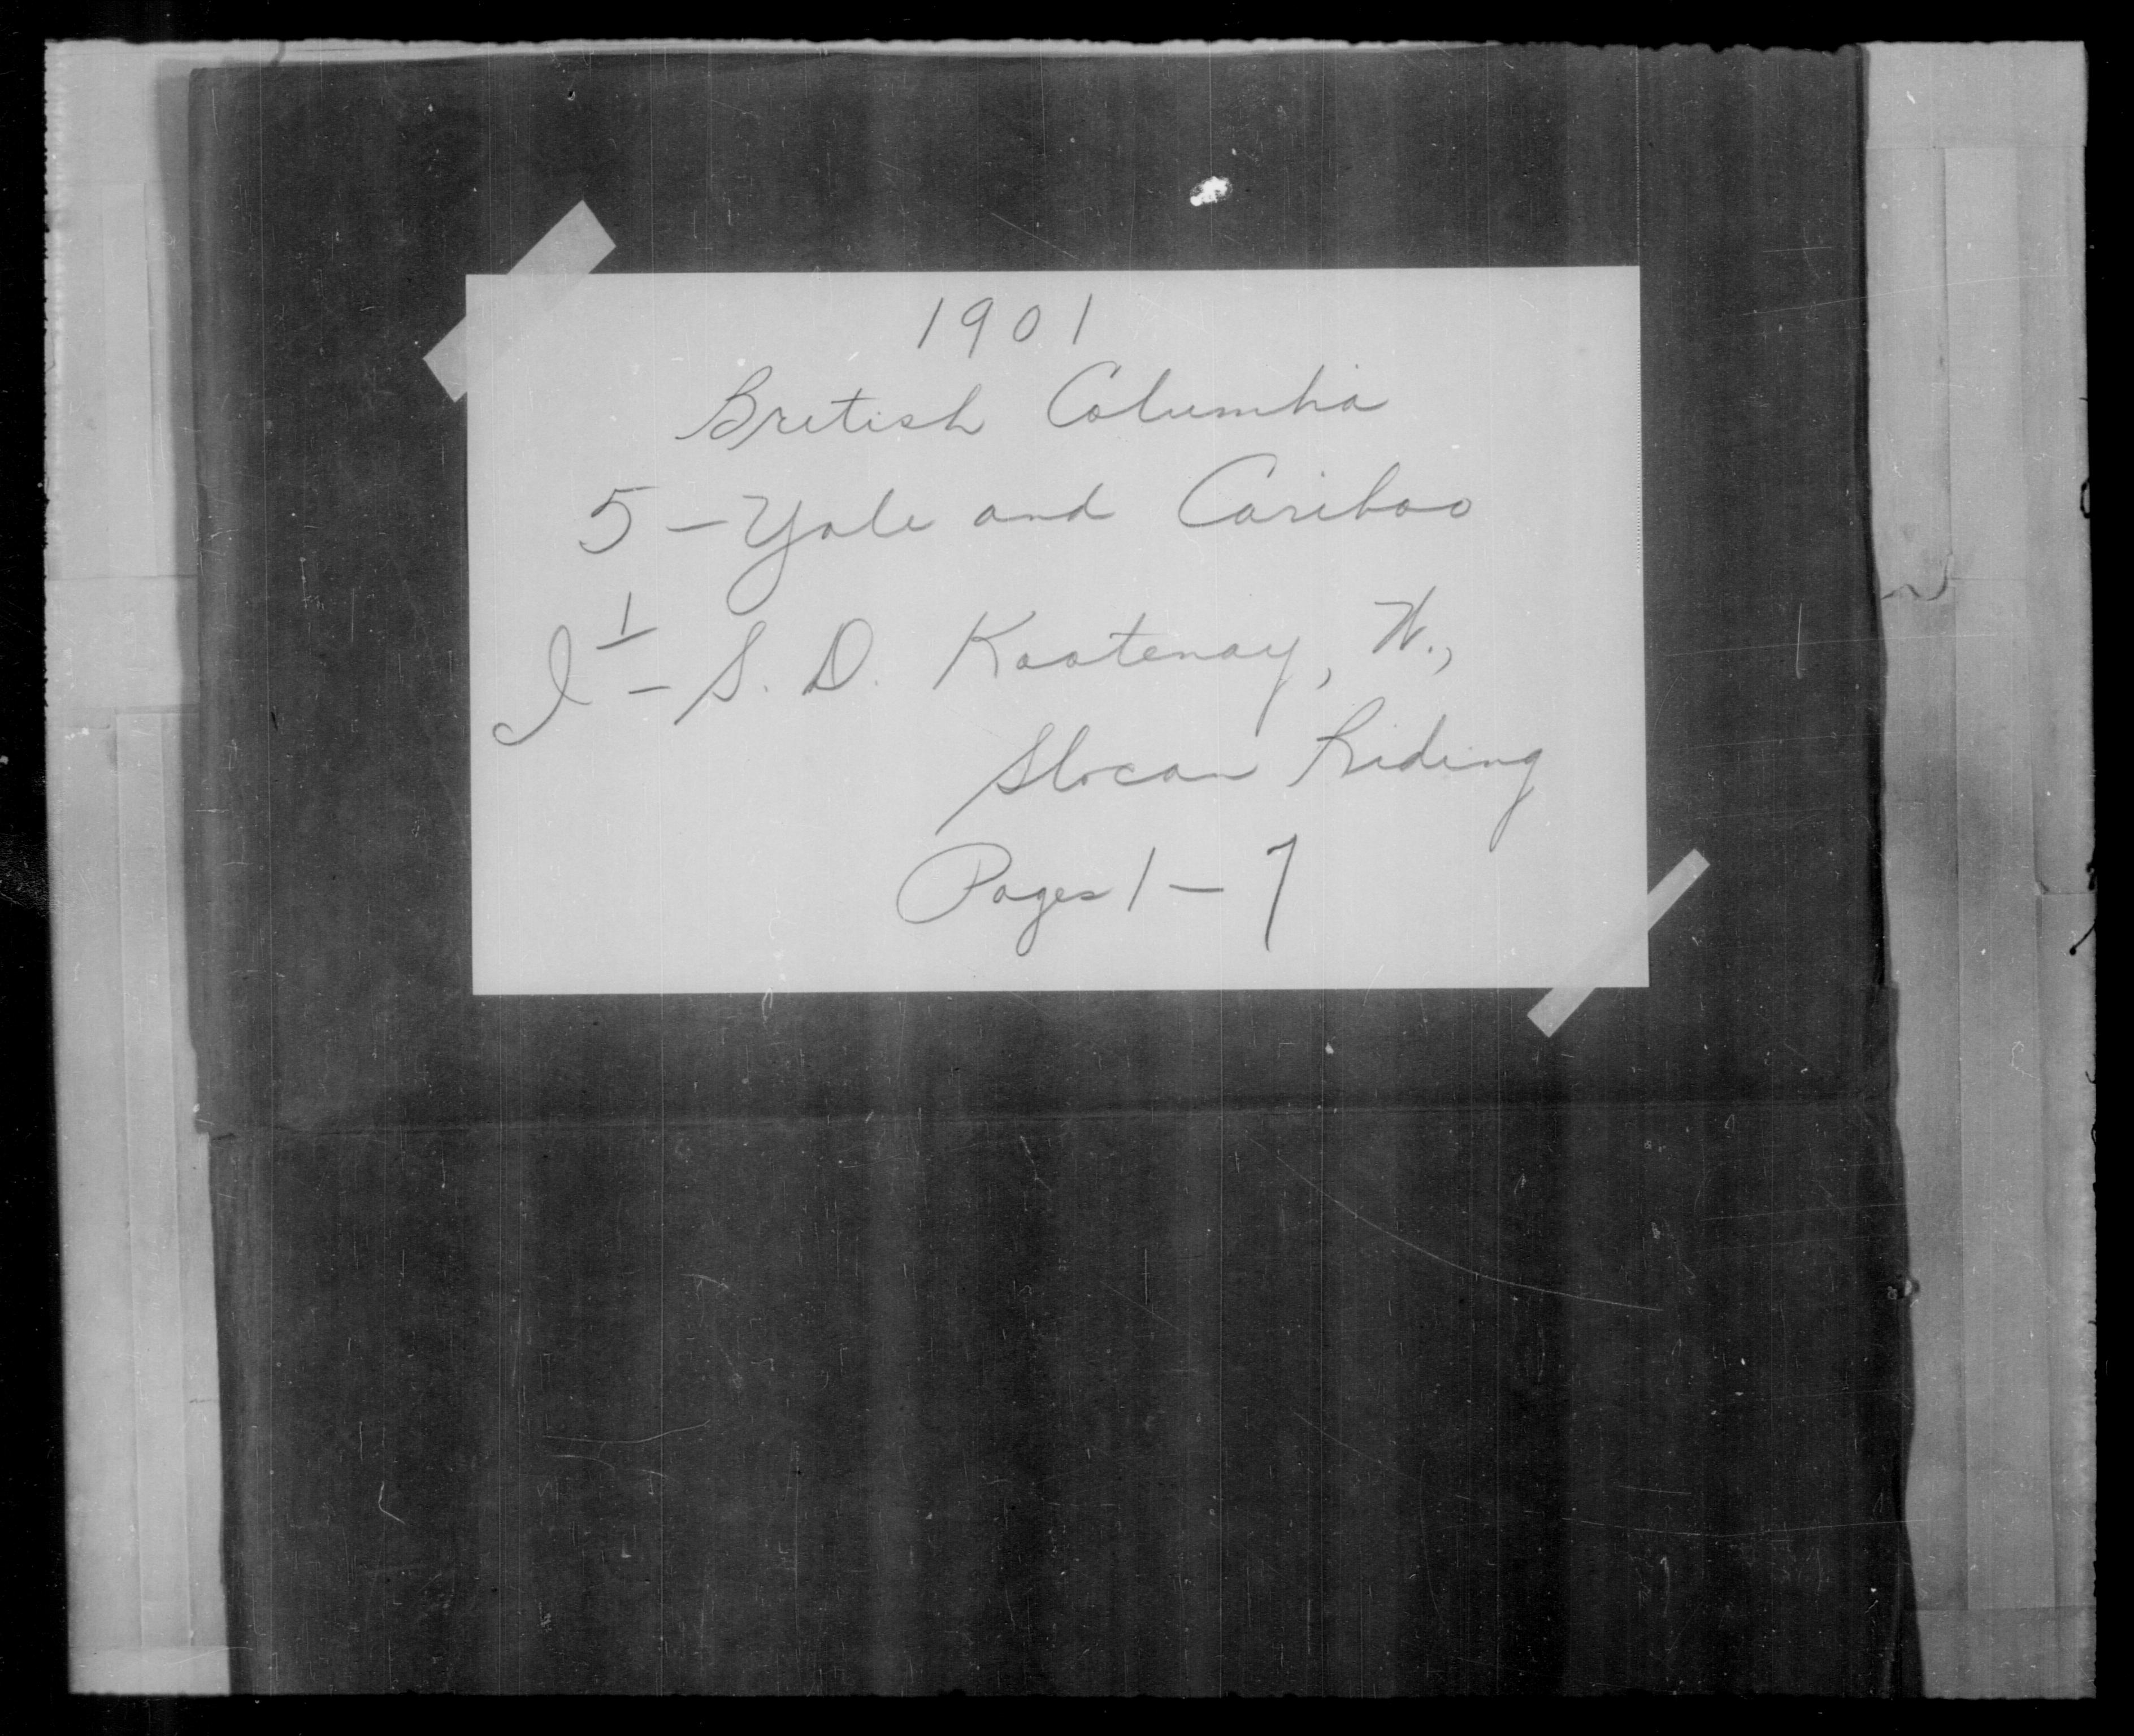 1901
British Columbia
5 - Yale and Cariboo
I¹ - S. D. Kootenay, W.,
Slocan Riding
Pages 1 - 7